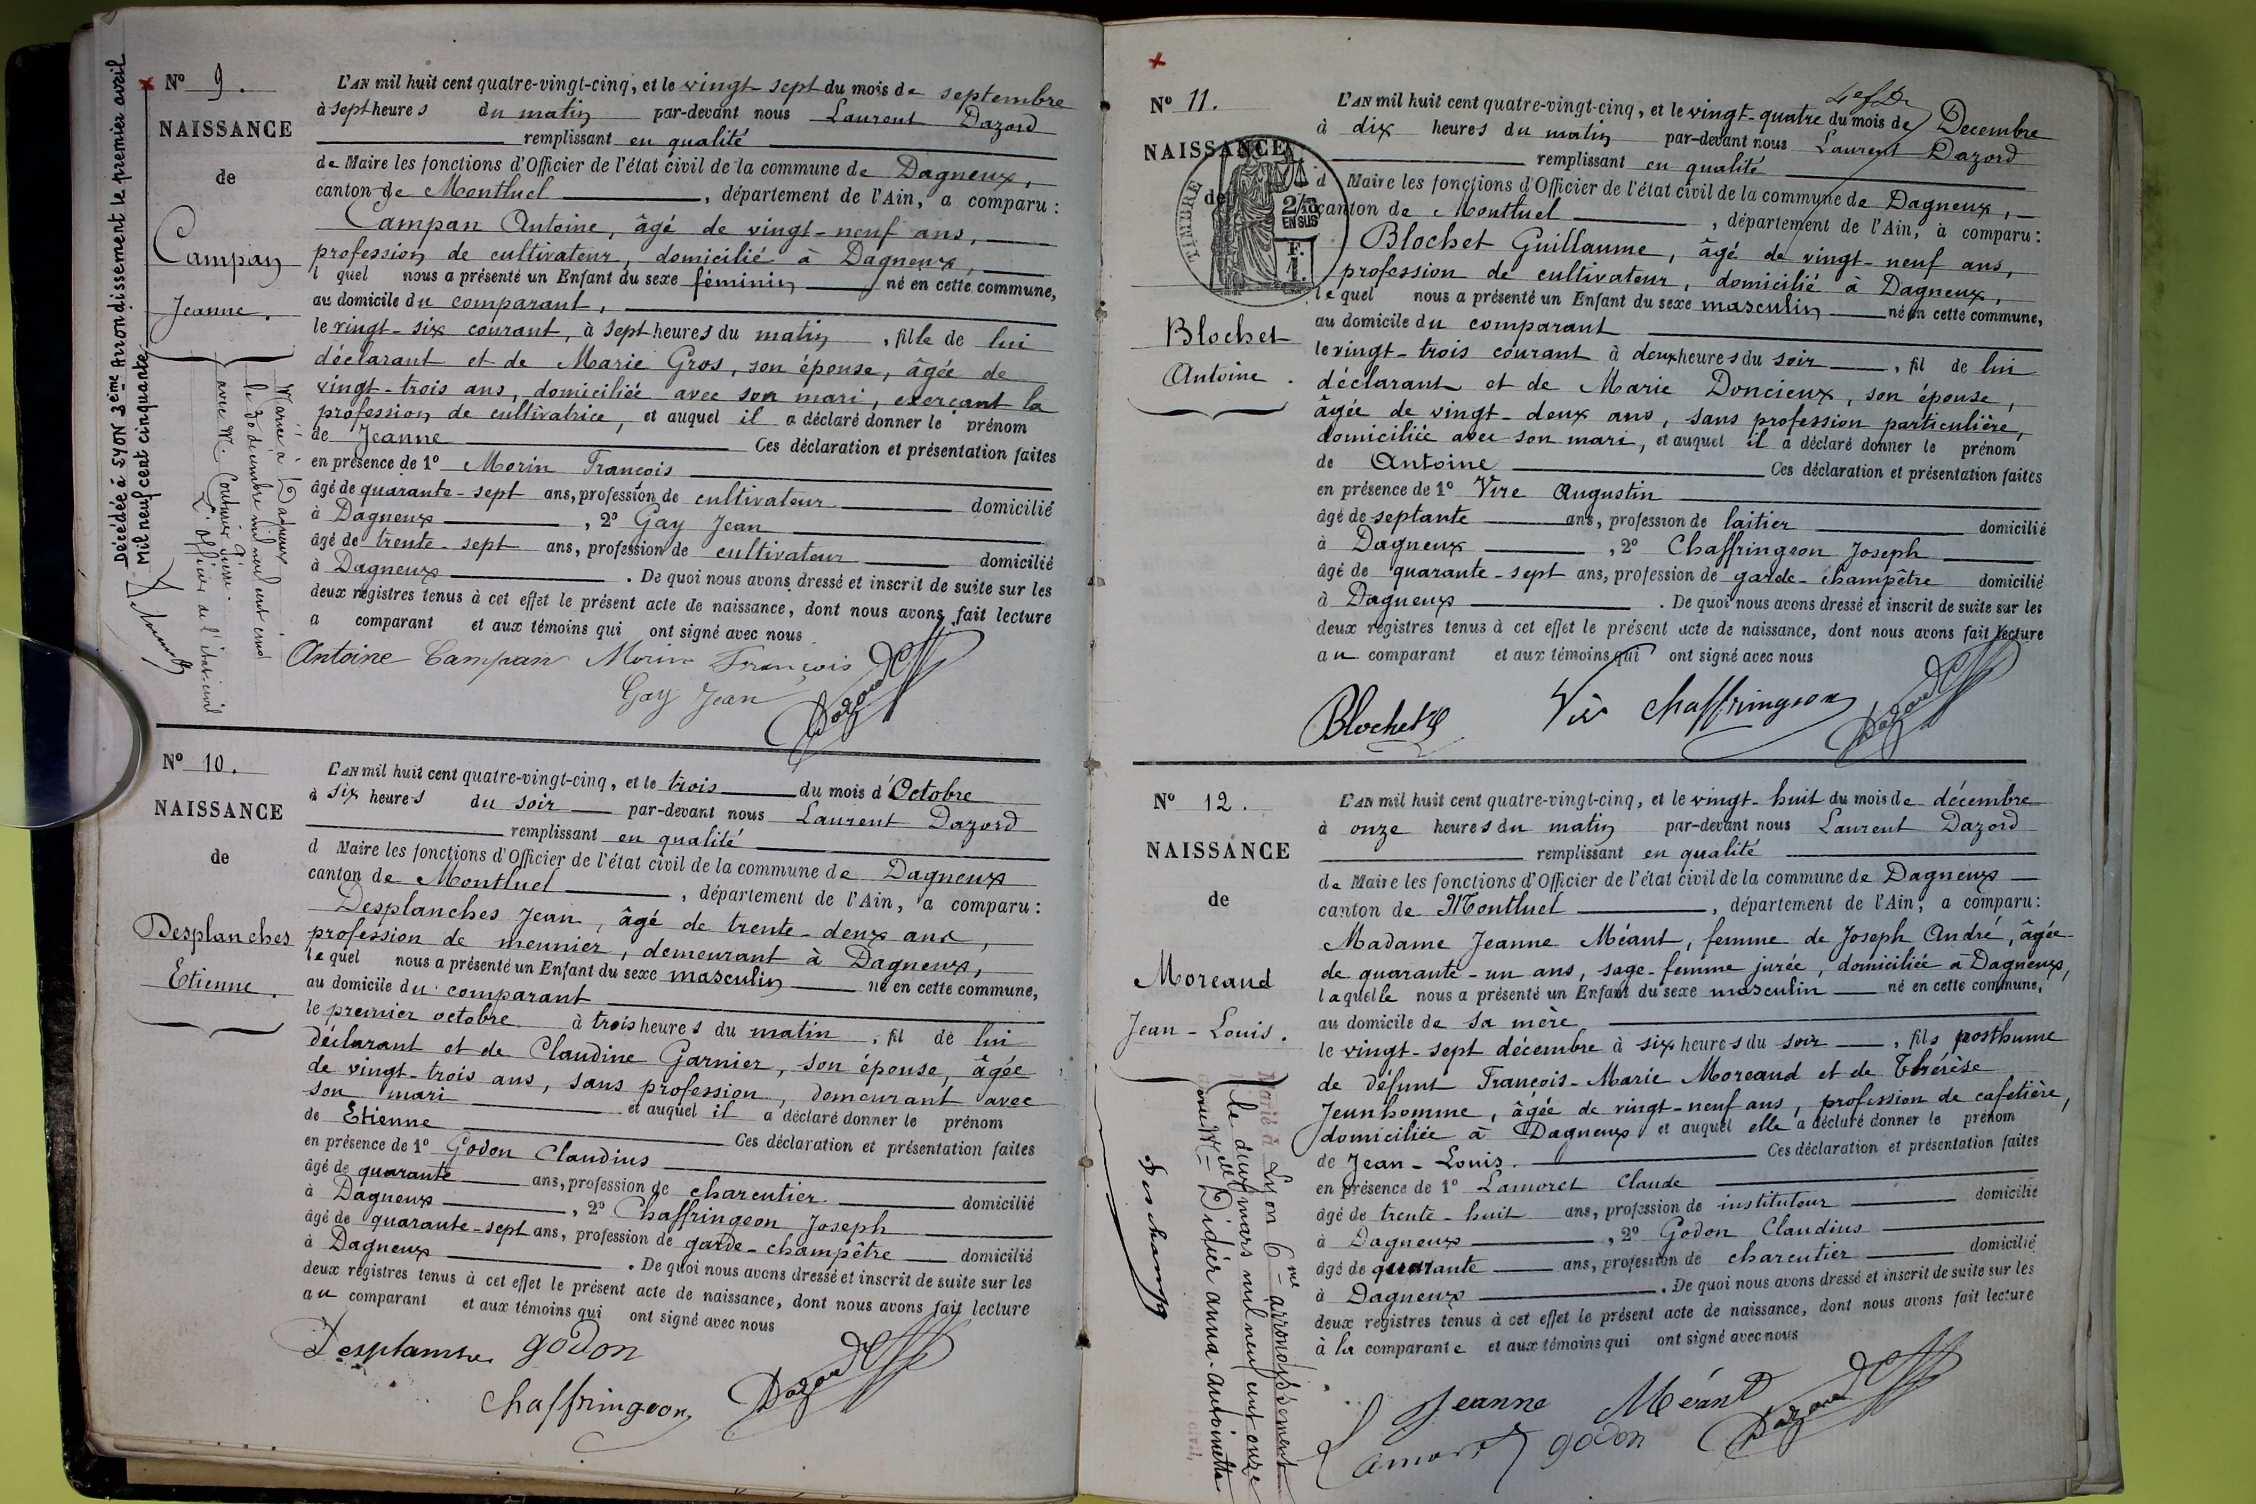 Nº 9.
NAISSANCE
de
Campan
Jeanne.
Décédée à LYON 3ème Arrondissement le premier avril
Mil neuf cent cinquante.
Mariée à Dagneux
le 30 décembre mil neuf cent cinq
avec M. Couturier Pierre.
L'Officier de l'état-civil
L'AN mil huit cent quatre-vingt-cinq, et le vingt-sept du mois de septembre
à sept heures du matin par-devant nous Laurent Dazord
remplissant en qualité
de Maire les fonctions d'Officier de l'état civil de la commune de Dagneux,
canton de Montluel, département de l'Ain, a comparu:
Campan Antoine, âgé de vingt-neuf ans,
profession de cultivateur, domicilié à Dagneux,
l quel nous a présenté un Enfant du sexe féminin né en cette commune,
au domicile du comparant,
le vingt-six courant, à sept heures du matin, fille de lui
déclarant et de Marie Gros, son épouse, âgée de
vingt-trois ans, domiciliée avec son mari, exerçant la
profession de cultivatrice, et auquel il a déclaré donner le prénom
de Jeanne Ces déclaration et présentation faites
en présence de 1º Morin François
âgé de quarante-sept ans, profession de cultivateur domicilié
à Dagneux, 2º Gay Jean
âgé de trente-sept ans, profession de cultivateur domicilié
à Dagneux. De quoi nous avons dressé et inscrit de suite sur les
deux registres tenus à cet effet le présent acte de naissance, dont nous avons fait lecture
a comparant et aux témoins qui ont signé avec nous
Antoine Campan Morin François
Gay Jean Dazord
Nº 10.
NAISSANCE
de
Desplanches
Etienne.
L'AN mil huit cent quatre-vingt-cinq, et le trois du mois d'Octobre
à six heures du soir par-devant nous Laurent Dazord
remplissant en qualité
d Maire les fonctions d'Officier de l'état civil de la commune de Dagneux
canton de Montluel, département de l'Ain, a comparu:
Desplanches Jean, âgé de trente-deux ans,
profession de meunier, demeurant à Dagneux,
le quel nous a présenté un Enfant du sexe masculin né en cette commune,
au domicile du comparant
le premier octobre à trois heures du matin, fil de lui
déclarant et de Claudine Garnier, son épouse, âgée
de vingt-trois ans, sans profession, demeurant avec
son mari et auquel il a déclaré donner le prénom
de Etienne Ces déclaration et présentation faites
en présence de 1º Godon Claudius
âgé de quarante ans, profession de charcutier domicilié
à Dagneux, 2º Chaffringeon Joseph
âgé de quarante-sept ans, profession de garde-champêtre domicilié
à Dagneux. De quoi nous avons dressé et inscrit de suite sur les
deux registres tenus à cet effet le présent acte de naissance, dont nous avons fait lecture
au comparant et aux témoins qui ont signé avec nous
Desplanches godon
Chaffringeon Dazord
Nº 11.
NAISSANCE
de
TIMBRE
2/10
EN SUS
F.
1.
Blochet
Antoine.
L'AN mil huit cent quatre-vingt-cinq, et le vingt-quatre du mois de Decembre
à dix heures du matin par-devant nous Laurent Dazord
remplissant en qualité
d Maire les fonctions d'Officier de l'état civil de la commune de Dagneux,
canton de Montluel, département de l'Ain, à comparu:
Blochet Guillaume, âgé de vingt-neuf ans,
profession de cultivateur, domicilié à Dagneux,
le quel nous a présenté un Enfant du sexe masculin né en cette commune,
au domicile du comparant
le vingt-trois courant à deux heures du soir, fil de lui
déclarant et de Marie Doncieux, son épouse,
âgée de vingt-deux ans, sans profession particulière,
domiciliée avec son mari, et auquel il a déclaré donner le prénom
de Antoine Ces déclaration et présentation faites
en présence de 1º Vire Augustin
âgé de septante ans, profession de laitier domicilié
à Dagneux, 2º Chaffringeon Joseph
âgé de quarante-sept ans, profession de garde-champêtre domicilié
à Dagneux. De quoi nous avons dressé et inscrit de suite sur les
deux registres tenus à cet effet le présent acte de naissance, dont nous avons fait lecture
au comparant et aux témoins qui ont signé avec nous
Blochet Vire Chaffringeon Dazord
Nº 12.
NAISSANCE
de
Moreaud
Jean-Louis.
Marié à Lyon 6me arrondissement
le deux mars mil neuf cent onze
avec Melle Didier anna-antoinette
Deschamps
L'AN mil huit cent quatre-vingt-cinq, et le vingt-huit du mois de décembre
à onze heures du matin par-devant nous Laurent Dazord
remplissant en qualité
de Maire les fonctions d'Officier de l'état civil de la commune de Dagneux
canton de Montluel, département de l'Ain, a comparu:
Madame Jeanne Méant, femme de Joseph André, âgée
de quarante-un ans, sage-femme jurée, domiciliée à Dagneux,
laquelle nous a présenté un Enfant du sexe masculin né en cette commune,
au domicile de sa mère
le vingt-sept décembre à six heures du soir, fils posthume
de défunt François-Marie Moreaud et de Thérèse
Jeunhomme, âgée de vingt-neuf ans, profession de cafetière,
domiciliée à Dagneux et auquel elle a déclaré donner le prénom
de Jean-Louis. Ces déclaration et présentation faites
en présence de 1º Lamoret Claude
âgé de trente-huit ans, profession de instituteur domicilié
à Dagneux, 2º Godon Claudius
âgé de quarante ans, profession de charcutier domicilié
à Dagneux. De quoi nous avons dressé et inscrit de suite sur les
deux registres tenus à cet effet le présent acte de naissance, dont nous avons fait lecture
à la comparante et aux témoins qui ont signé avec nous
Jeanne Méant Dazord
Lamoret godon